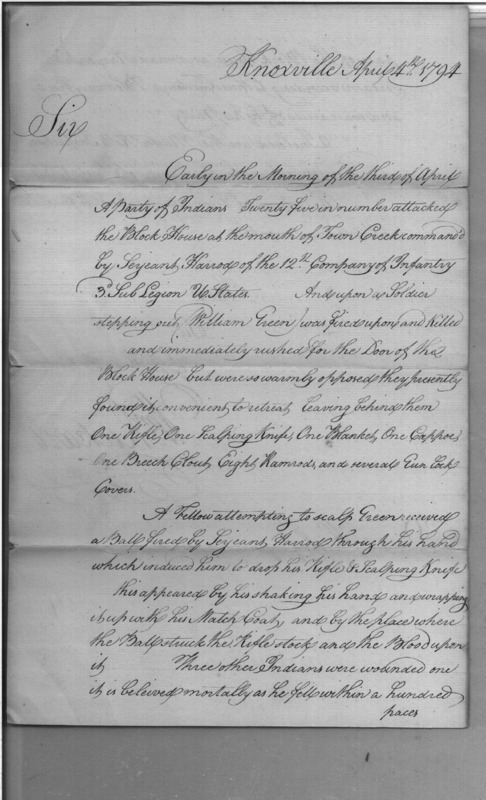 Knoxville April 4th. 1794
Sir
Early in the Morning of the third of April
A Party of Indians Twenty five in number attacked
the Block House at the mouth of Town Creek command'd
by Serjeant Harrod of the 12th Company of Infantry
3d Sub Legion U States. And upon a Soldier
stepping out, William Green, was fired upon and killed
and immediately rushed for the Door of the
Block House but were so warmly opposed they presently
found it convenient to retreat leaving behind them
One Rifle, One Scalping Knife, One Blanket, One Cappoe,
One Breech Clout, Eight Ramrods, and several Gun Lock
Covers.
A Fellow attempting to scalp Green received
a Ball fired by Serjeant Harrod through his hand
which induced him to drop his Rifle & Scalping Knife
this appeared by his shaking his hand and wrapping
it up with his Match Coat, and by the place where
the Ball struck the Rifle stock and the Blood upon
it Three other Indians were wounded one
it is beleived mortally as he fell within a hundred
paces